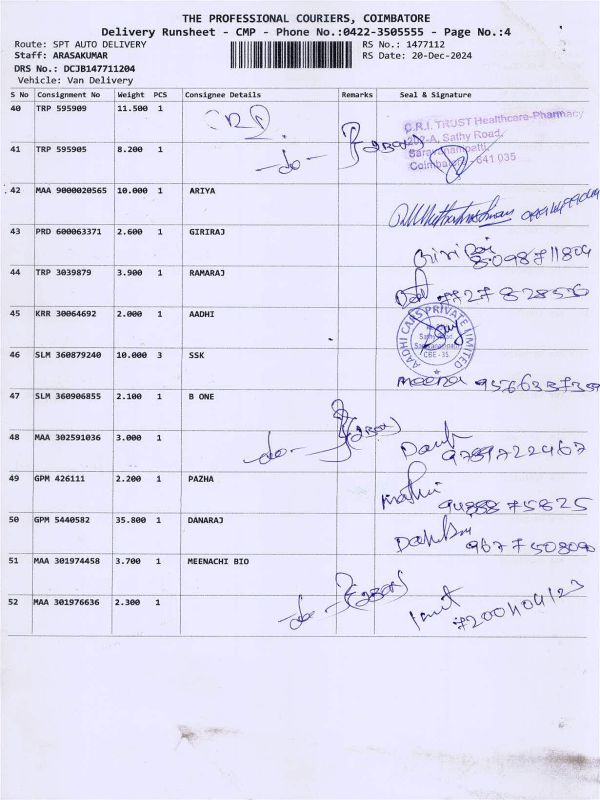 THE PROFESSIONAL COURIERS, COIMBATORE
Delivery Runsheet - CMP - Phone No.:0422-3505555 - Page No.:4
Route: SPT AUTO DELIVERY RS No.: 1477112
Staff: ARASAKUMAR RS Date: 20-Dec-2024
DRS No.: DCJB147711204
Vehicle: Van Delivery
S No Consignment No Weight PCS Consignee Details Remarks Seal & Signature
40 TRP 595909 11.500 1
C.R.I. TRUST Healthcare-Pharmacy
Sathy Road,
Saravanampatti,
641 035
41 TRP 595905 8.200 1 -do-
42 MAA 9000020565 10.000 1 ARIYA
43 PRD 600063371 2.600 1 GIRIRAJ
44 TRP 3039879 3.900 1 RAMARAJ
45 KRR 30064692 2.000 1 AADHI
AADHI CABS PRIVATE LIMITED
CBE - 35
46 SLM 360879240 10.000 3 SSK Meena
47 SLM 360906855 2.100 1 B ONE
48 MAA 302591036 3.000 1 -do- 9789722467
49 GPM 426111 2.200 1 PAZHA
50 GPM 5440582 35.800 1 DANARAJ
51 MAA 301974458 3.700 1 MEENACHI BIO
52 MAA 301976636 2.300 1 -do-